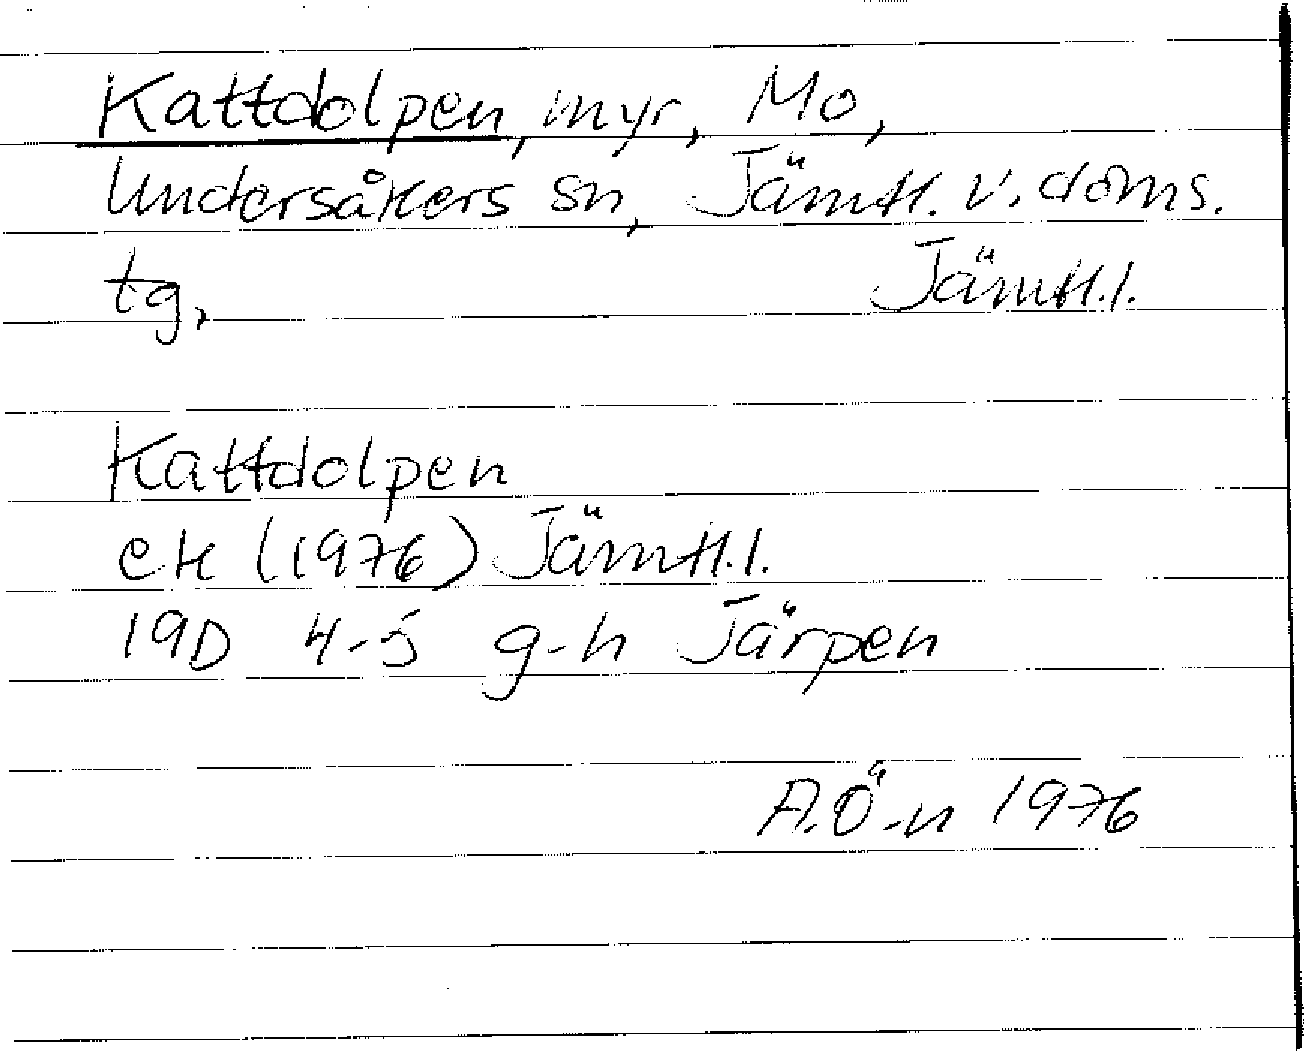 Kattdolpen, myr, Mo,
Undersåkers sn, Jämtl. v. doms.
tg, Jämtl.l.
Kattdolpen
ek (1976) Jämtl.l.
19D 4-5 g-h Järpen
A.Ö-n 1976